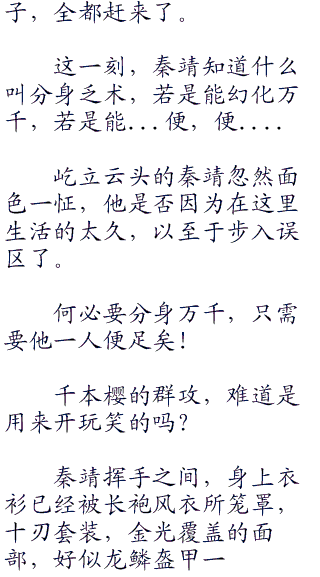 子，全都赶来了。
这一刻，秦靖知道什么
叫分身乏术，若是能幻化万
千，若是能...便，便....
屹立云头的秦靖忽然面
色一怔，他是否因为在这里
生活的太久，以至于步入误
区了。
何必要分身万千，只需
要他一人便足矣！
千本樱的群攻，难道是
用来开玩笑的吗？
秦靖挥手之间，身上衣
衫已经被长袍风衣所笼罩，
十刃套装，金光覆盖的面
部，好似龙鳞盔甲一